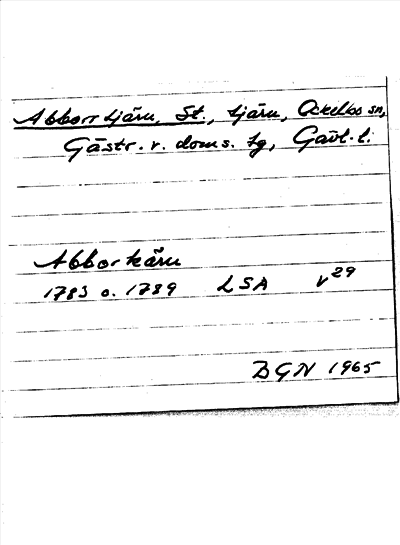 Abborrtjärn, St., tjärn, Ockelbo sn,
Gästr. v. doms. tg, Gävl. l.
Abborkärn
1783 o. 1789 LSA v29
DGN 1965